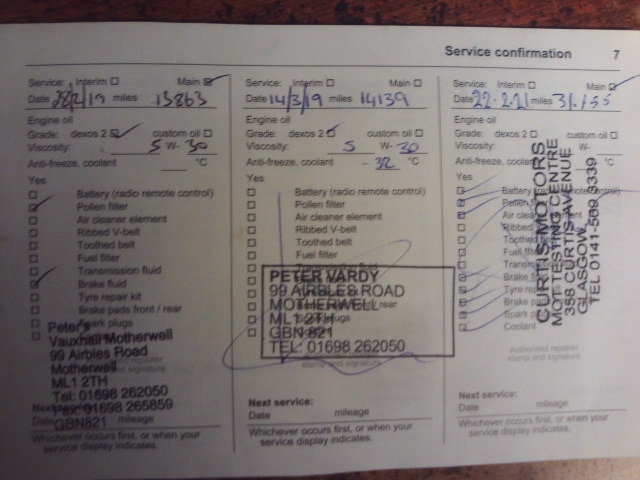 Service confirmation 7
Service: Interim Main
Date 28/2/19 miles 13863
Engine oil
Grade: dexos 2 custom oil
Viscosity: 5 W- 30
Anti-freeze, coolant °C
Yes
Battery (radio remote control)
Pollen filter
Air cleaner element
Ribbed V-belt
Toothed belt
Fuel filter
Transmission fluid
Brake fluid
Tyre repair kit
Brake pads front / rear
Spark plugs
Peter's
Vauxhall Motherwell
99 Airbles Road
Motherwell
ML1 2TH
Tel: 01698 262050
Fax: 01698 265859
GBN821
Next service:
Date mileage
Whichever occurs first, or when your
service display indicates.
Service: Interim Main
Date 14/3/19 miles 14139
Engine oil
Grade: dexos 2 custom oil
Viscosity: 5 W- 30
Anti-freeze, coolant - 32 °C
Yes
Battery (radio remote control)
Pollen filter
Air cleaner element
Ribbed V-belt
Toothed belt
Fuel filter
PETER VARDY
99 AIRBLES ROAD
MOTHERWELL
ML1 2TH
GBN 821
TEL: 01698 262050
stamp and signature
Next service:
Date mileage
Whichever occurs first, or when your
service display indicates.
Service: Interim Main
Date 22-2-21 miles 31,155
Engine oil
Grade: dexos 2 custom oil
Viscosity: W-
Anti-freeze, coolant °C
Yes
Battery
Pollen
Air
Ribbed
Toothed
Fuel
Brake
Tyre
Brake
Spark
Coolant
CURTIS MOTORS
MOT TESTING CENTRE
358 CURTIS AVENUE
GLASGOW
TEL 0141-569 9339
Authorised repairer
stamp and signature
Next service:
Date mileage
Whichever occurs first, or when your
service display indicates.